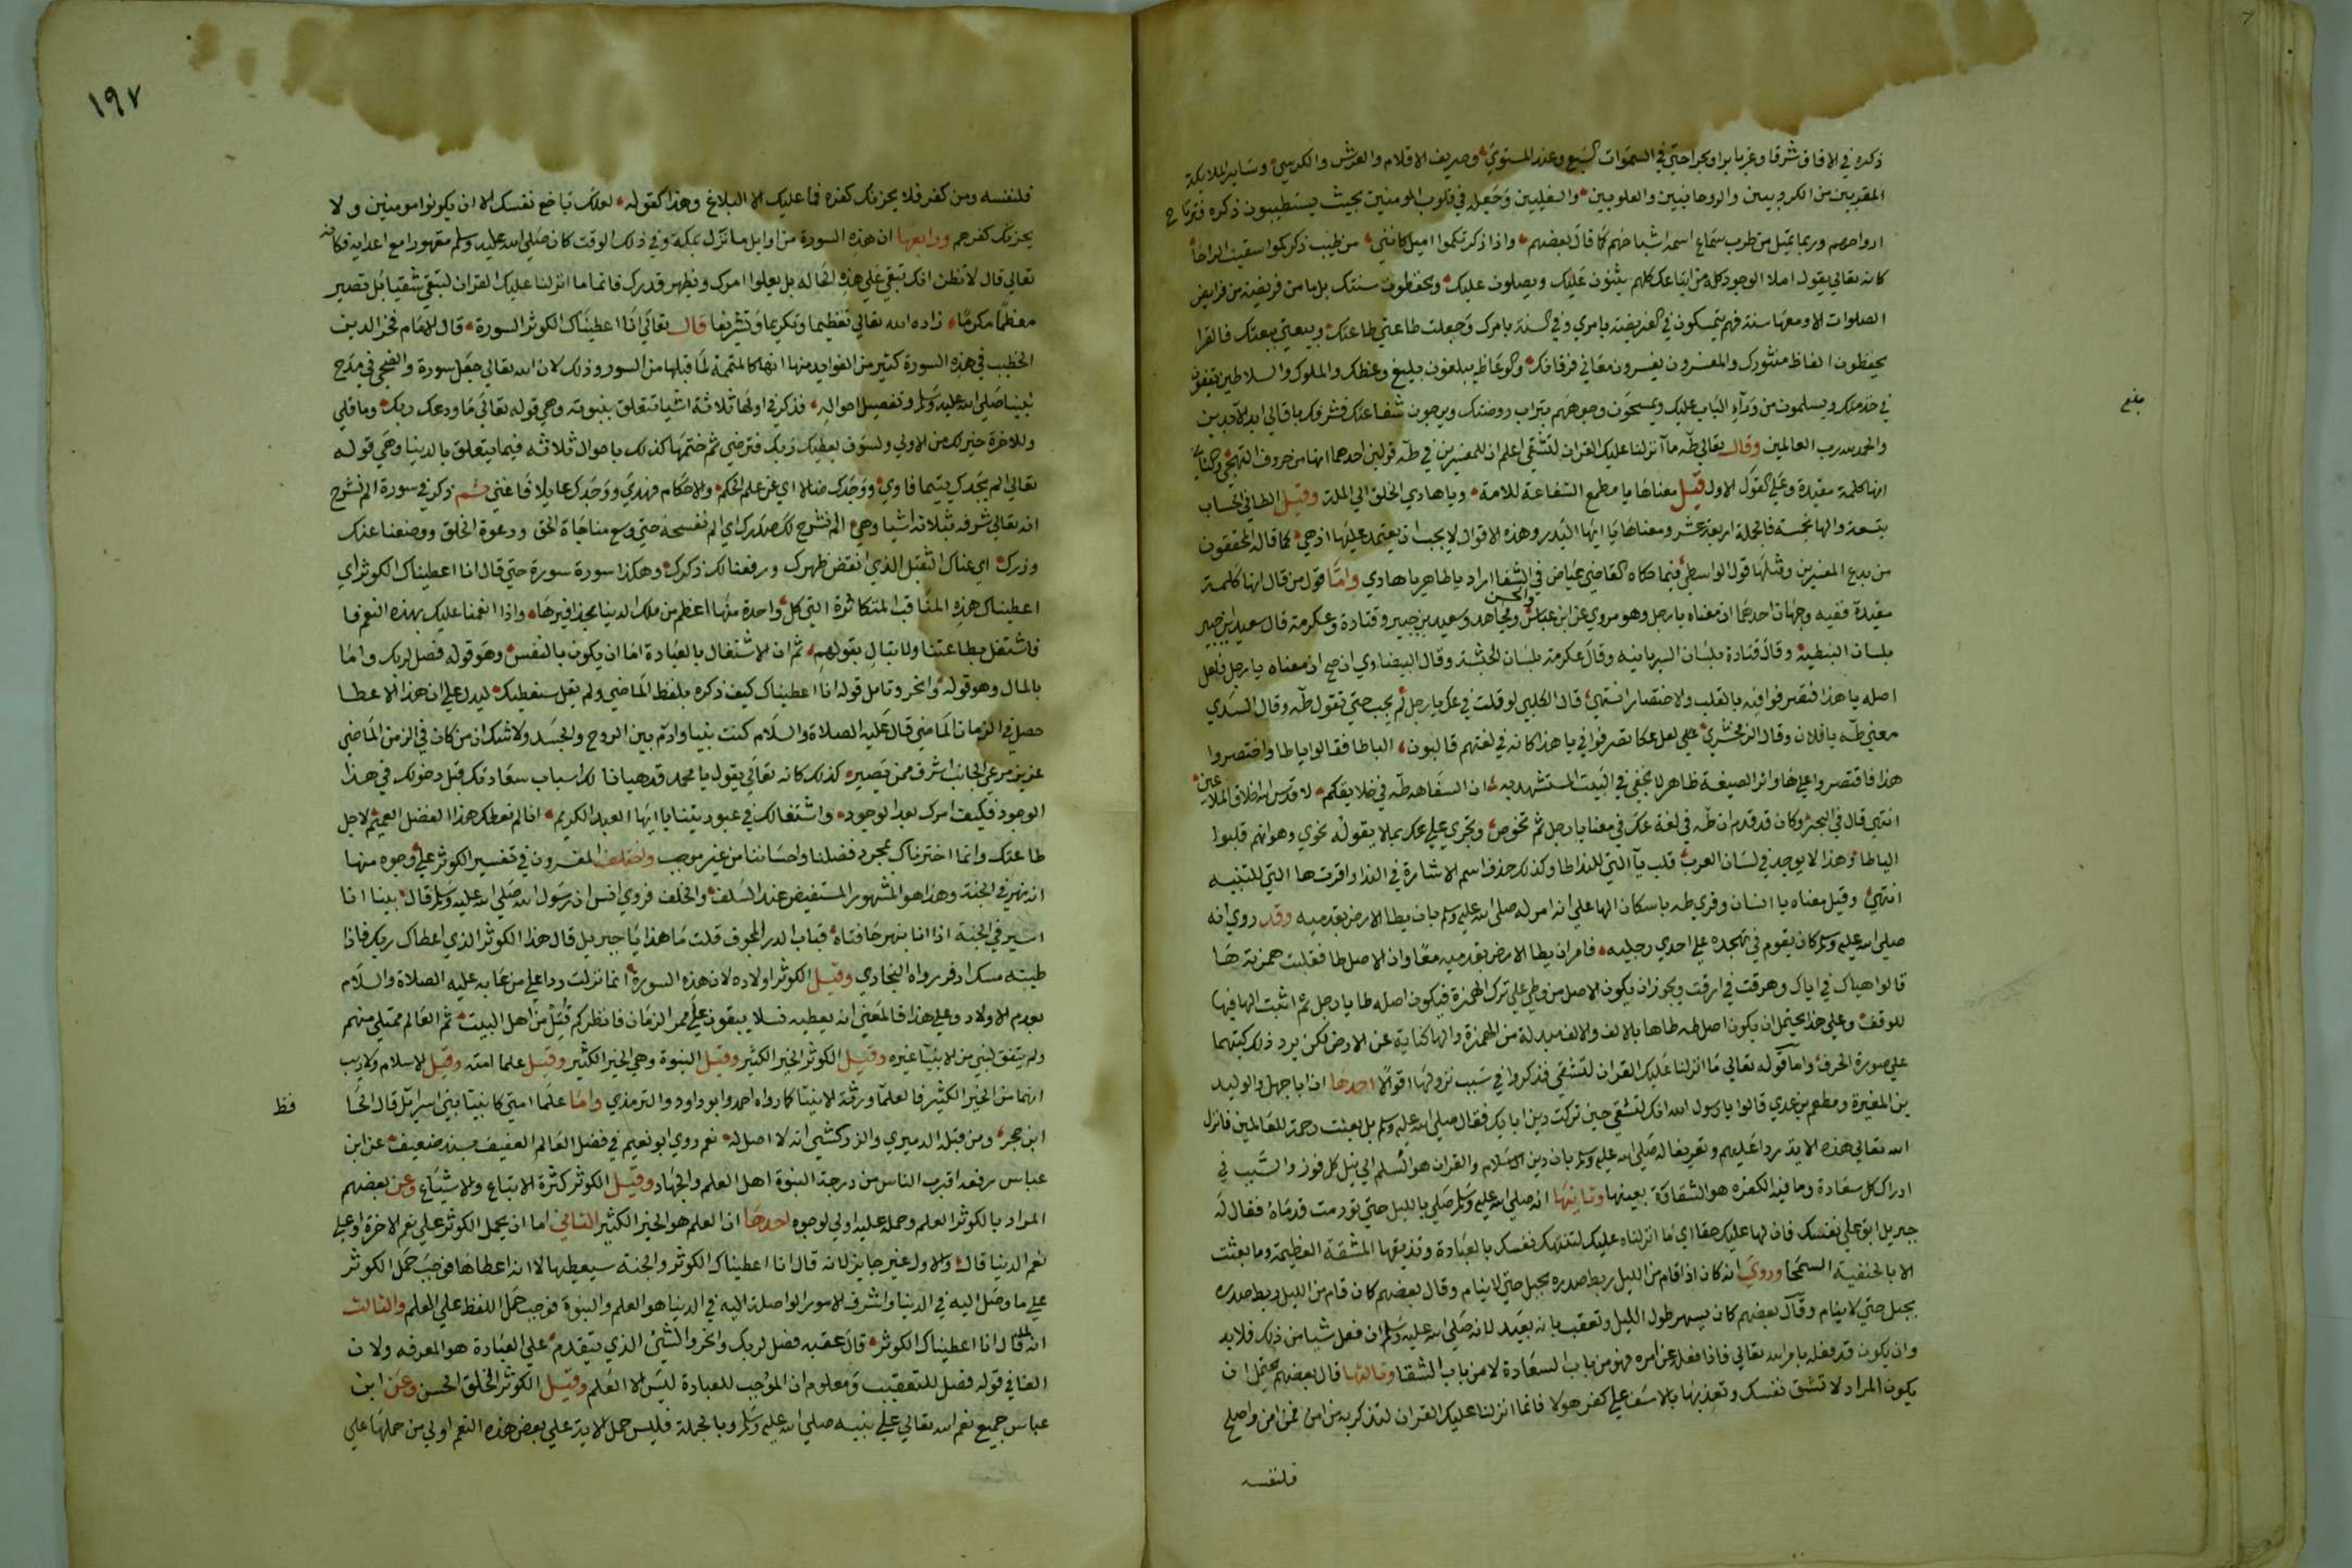 ذكره في الافاق شرقا وغربا برا وبحرا حتي في السموات السبع وعند المستوي وصريف الاقلام والعرش والكرسي وساير الملايكة
المقربين من الكروبيين والروحانيين والعلويين والسفليين وجعله في قلوب المومنين بحيث يستطيبون ذكره فترتاح
ارواحهم وربما تميل من طرب سماع اسمه اشباحهم كما قال بعضهم واذا ذكرتكموا اميل كانني من طيب ذكركموا سقيت الراحا
كانه تعالي يقول املا الوجود كله من اتباعك كلهم يثنون عليك ويصلون عليك ويحفظون سنتك بل ما من فريضة من فرايض
الصلوات الا ومعها سنة فهم يتمسكون في الفريضة بامري وفي السنة بامرك وجعلت طاعتي طاعتك وبيعتي بيعتك فالقرا
يحفظون الفاظ منشورك والمفسرون يفسرون معاني فرقانك والوعاظ يبلغون بليغ وعظك والملوك والسلاطين يقفون
في خدمتك ويسلمون من وراء الباب عليك ويمسحون وجوههم بتراب روضتك ويرجون شفاعتك فشرفك باق الي ابد الابدين
والحمد لله رب العالمين وقال تعالي طه ما انزلنا عليك القران لتشقي اعلم ان للمفسرين في طه قولين احدهما انها من حروف التهجي والثاني
انها كلمة مفيدة وعلي القول الاول قيل معناها يا مطمع الشفاعة للامة ويا هادي الخلق الي الملة وقيل الطا في الحساب
بتسعة والها بخمسة فالجملة اربعة عشر ومعناها يا ايها البدر وهذه الاقوال لا يجب ان يعتمد عليها اذ هي كما قاله المحققون
من بدع المفسرين ومثلها قول الواسطي فيما حكاه القاضي عياض في الشفا اراد يا طاهر يا هادي واما قول من قال انها كلمة
مفيدة ففيه وجهان احدهما ان معناه يا رجل وهو مروي عن ابن عباس والحسن ومجاهد وسعيد بن جبير وقتادة وعكرمة قال سعيد بن جبير
بلسان النبطية وقال قتادة بلسان السريانية وقال عكرمة بلسان الحبشة وقال البيضاوي ان صح ان معناه يا رجل فلعل
اصله يا هذا فتصرفوا فيه بالقلب والاختصار انتهي قال الكلبي لو قلت في عك يا رجل لم يجب حتي تقول طه وقال السدي
معني طه يا فلان وقال الزمخشري علي لعل عكا تصرفوا في يا هذا كانه في لغتهم قالبون اليا طا فقالوا يا طا واختصروا
هذا فاقتصروا علي ها واثر الصيغة ظاهر لا يخفي في البيت المستشهد به ان السفاهة طه في خلايقكم لا قدس الله اخلاق الملاعين
انتهي قال في البحر وكان قد قدم ان طه في لغة عك في معنا يا رجل ثم تخوص وتجري علي عك بما لا يقوله نحوي وهو انهم قلبوا
اليا طا وهذا لا يوجد في لسان العرب قلب يا التي للندا طا وكذلك حذف اسم الاشارة في الندا واقرت ها التي للتنبيه
انتهي وقيل معناه يا انسان وقري طه باسكان الها علي انه امر له صلي الله عليه وسلم بان يطا الارض بقدميه وقد روي انه
صلي الله عليه وسلم كان يقوم في تهجده علي احدي رجليه فامر ان يطا الارض بقدميه معا وان الاصل طا فقلبت همزته ها
قالوا هياك في اياك وهرقت في ارقت ويجوز ان يكون الاصل من وطي علي ترك الهمزة فيكون اصله طا يا رجل ثم اثبت الها فيها
للوقف وعلي هذا يحتمل ان يكون اصل طه طاها بالالف والالف مبدلة من الهمزة والها كناية عن الارض لكن يرد ذلك كتبهما
علي صورة الحرف واما قوله تعالي ما انزلنا عليك القران لتشقي فذكروا في سبب نزولها اقوالا احدها ان ابا جهل والوليد
بن المغيرة ومطعم بن عدي قالوا يا رسول الله انك لتشقي حين تركت دين ابايك فقال صلي الله عليه وسلم بل بعثت رحمة للعالمين فانزل
الله تعالي هذه الاية ردا عليهم وتعريفا له صلي الله عليه وسلم بان دين الاسلام والقران هو السلم الي نيل كل فوز والسبب في
ادراك كل سعادة وما فيه الكفره هو الشقاوة بعينها وثانيها انه صلي الله عليه وسلم صلي بالليل حتي تورمت قدماه فقال له
جبريل ابق علي نفسك فان لها عليك حقا اي ما انزلناه عليك لتنهك نفسك بالعبادة وتذيقها المشقة العظيمة وما بعثت
الا بالحنفية السمحا وروي انه كان اذا قام من الليل ربط صدره بحبل حتي لا ينام وقال بعضهم كان قام من الليل ربط صدره
بحبل حتي لا ينام وقال بعضهم كان يسهر طول الليل وتعقب بانه بعيد لانه صلي الله عليه وسلم ان فعل شيا من ذلك فلا بد
وان يكون قد فعله بامر الله تعالي فاذا فعله عن امره فهو من باب السعادة لا من باب الشقا وثالثها قال بعضهم يحتمل ان
يكون المراد لا تشق نفسك وتعذبها بالاسف علي كفر هولا فانما انزلنا عليك القران لتذكر به من امن فمن امن واصلح
فلنفسه
بلغ
١٩٧
فلنفسه ومن كفر فلا يحزنك كفره فما عليك الا البلاغ وهذا كقوله لعلك باخع نفسك الا ان يكونوا مومنين ولا
يحزنك كفرهم ورابعها ان هذه السورة من اوايل ما نزل بمكة وفي ذلك الوقت كان صلي الله عليه وسلم مقهورا مع اعدايه فكانه
تعالي قال لا تظن انك تبقي علي هذه الحالة بل يعلوا امرك ويظهر قدرك فانا ما انزلنا عليك القران لتبقي شقيا بل تصير
معظما مكرما زاده الله تعالي تعظيما وتكريما وتشريفا قال تعالي انا اعطيناك الكوثر السورة قال الامام فخر الدين
الخطيب في هذه السورة كثير من الفوايد منها انها كالمتممة لما قبلها من السور وذلك لان الله تعالي جعل سورة والضحي في مدح
نبينا صلي الله عليه وسلم وتفصيل احواله فذكر في اولها ثلاثة اشيا تتعلق بنبوته وهي قوله تعالي ما ودعك ربك وما قلي
وللاخرة خير لك من الاولي ولسوف يعطيك ربك فترضي ثم ختمها كذلك باحوال ثلاثة فيما يتعلق بالدنيا وهي قوله
تعالي الم يجدك يتيما فاوي ووجدك ضالا اي عن علم الحكم والاحكام فهدي ووجدك عايلا فاغني ثم ذكر في سورة الم نشرح
انه تعالي شرفه بثلاثة اشيا وهي الم نشرح لك صدرك اي الم نفسحه حتي وسع مناجاة الحق ودعوة الخلق ووضعنا عنك
وزرك اي عناك الثقيل الذي انقض ظهرك ورفعنا لك ذكرك وهكذا سورة سورة حتي قال انا اعطيناك الكوثر اي
اعطيناك هذه المناقب المتكاثرة التي كل واحدة منها اعظم من ملك الدنيا بحذافيرها واذا انعمنا عليك بهذه النعم فا
فاشتغل بطاعتنا ولا تبال بقولهم ثم ان الاشتغال بالعبادة اما ان يكون بالنفس وهو قوله فصل لربك واما
بالمال وهو قوله وانحر وتامل قوله انا اعطيناك كيف ذكره بلفظ الماضي ولم يقل سنعطيك ليدل علي ان هذا الاعطا
حصل في الزمان الماضي قال عليه الصلاة والسلام كنت نبيا وادم بين الروح والجسد ولا شك ان من كان في الزمن الماضي
عزيزا مرعي الجانب اشرف ممن يصير كذلك كانه تعالي يقول يا محمد قد هيانا لك اسباب سعادتك قبل دخولك في هذا
الوجود فكيف امرك بعد الوجود واشتغالك في عبوديتنا يا ايها العبد الكريم انا لم نعطك هذا الفضل العميم لاجل
طاعتك وانما اخترناك بمجرد فضلنا واحساننا من غير موجب واختلف المفسرون في تفسير الكوثر علي وجوه منها
انه نهر في الجنة وهذا هو المشهور المستفيض عند السلف والخلف فروي انس ان رسول الله صلي الله عليه وسلم قال بينا انا
اسير في الجنة اذا انا بنهر حافتاه قباب الدر المجوف قلت ما هذا يا جبريل قال هذا الكوثر الذي اعطاك ربك فاذا
طينه مسك اذفر رواه البخاري وقيل الكوثر اولاده لان هذه السورة انما نزلت ردا علي من عابه عليه الصلاة والسلام
بعدم الاولاد وعلي هذا فالمعني انه يعطيه نسلا يبقون علي ممر الزمان فانظر كم قتل من اهل البيت ثم العالم ممتلي منهم
ولم يتفق لنبي من الانبيا غيره وقيل الكوثر الخير الكثير وقيل النبوة وهي الخير الكثير وقيل علما امته وقيل الاسلام ولا ريب
انهما من الخير الكثير فالعلما ورثة الانبيا كما رواه احمد وابو داود والترمذي واما علما امتي كانبيا بني اسرايل قال الحا
فظ
ابن حجر ومن قبله الدميري والزركشي انه لا اصل له نعم روي ابو نعيم في فضل العالم العفيف بسند ضعيف عن ابن
عباس رفعه اقرب الناس من درجة النبوة اهل العلم والجهاد وقيل الكوثر كثرة الاتباع والاشياع وعن بعضهم
المراد بالكوثر العلم وحمله عليه اولي لوجوه احدها ان العلم هو الخير الكثير الثاني اما ان يحمل الكوثر علي نعم الاخرة او علي
نعم الدنيا قال والاول غير جايز لانه قال انا اعطيناك الكوثر والجنة سيعطيها لا انه اعطاها فوجب حمل الكوثر
علي ما وصل اليه في الدنيا واشرف الامور الواصلة اليه في الدنيا هو العلم والنبوة فوجب حمل اللفظ علي العلم والثالث
انه لما قال انا اعطيناك الكوثر قال عقبه فصل لربك وانحر والشي الذي يتقدم علي العبادة هو المعرفه ولان
الفا في قوله فصل للتعقيب ومعلوم ان الموجب للعبادة ليس الا العلم وقيل الكوثر الخلق الحسن وعن ابن
عباس جميع نعم الله تعالي علي نبيه صلي الله عليه وسلم وبالجملة فليس حمل الاية علي بعض هذه النعم اولي من حملها علي